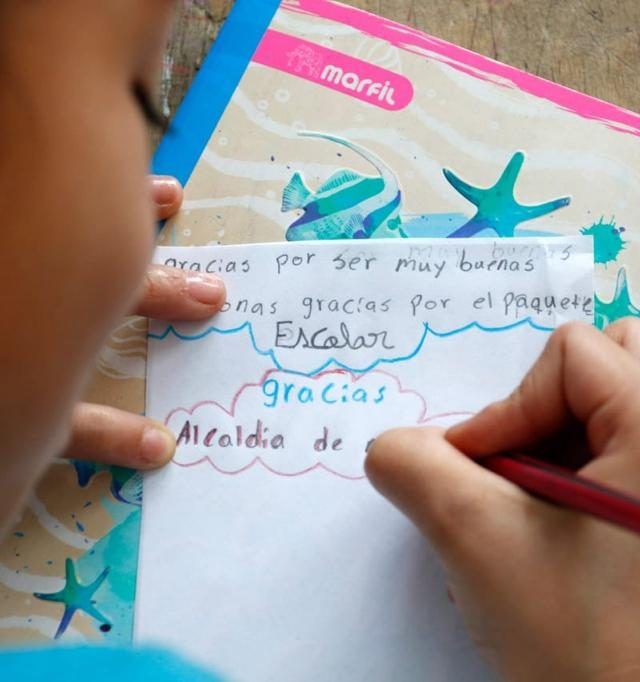 marfil
gracias por ser muy buenas
onas gracias por el paquete
Escolar
gracias
Alcaldia de